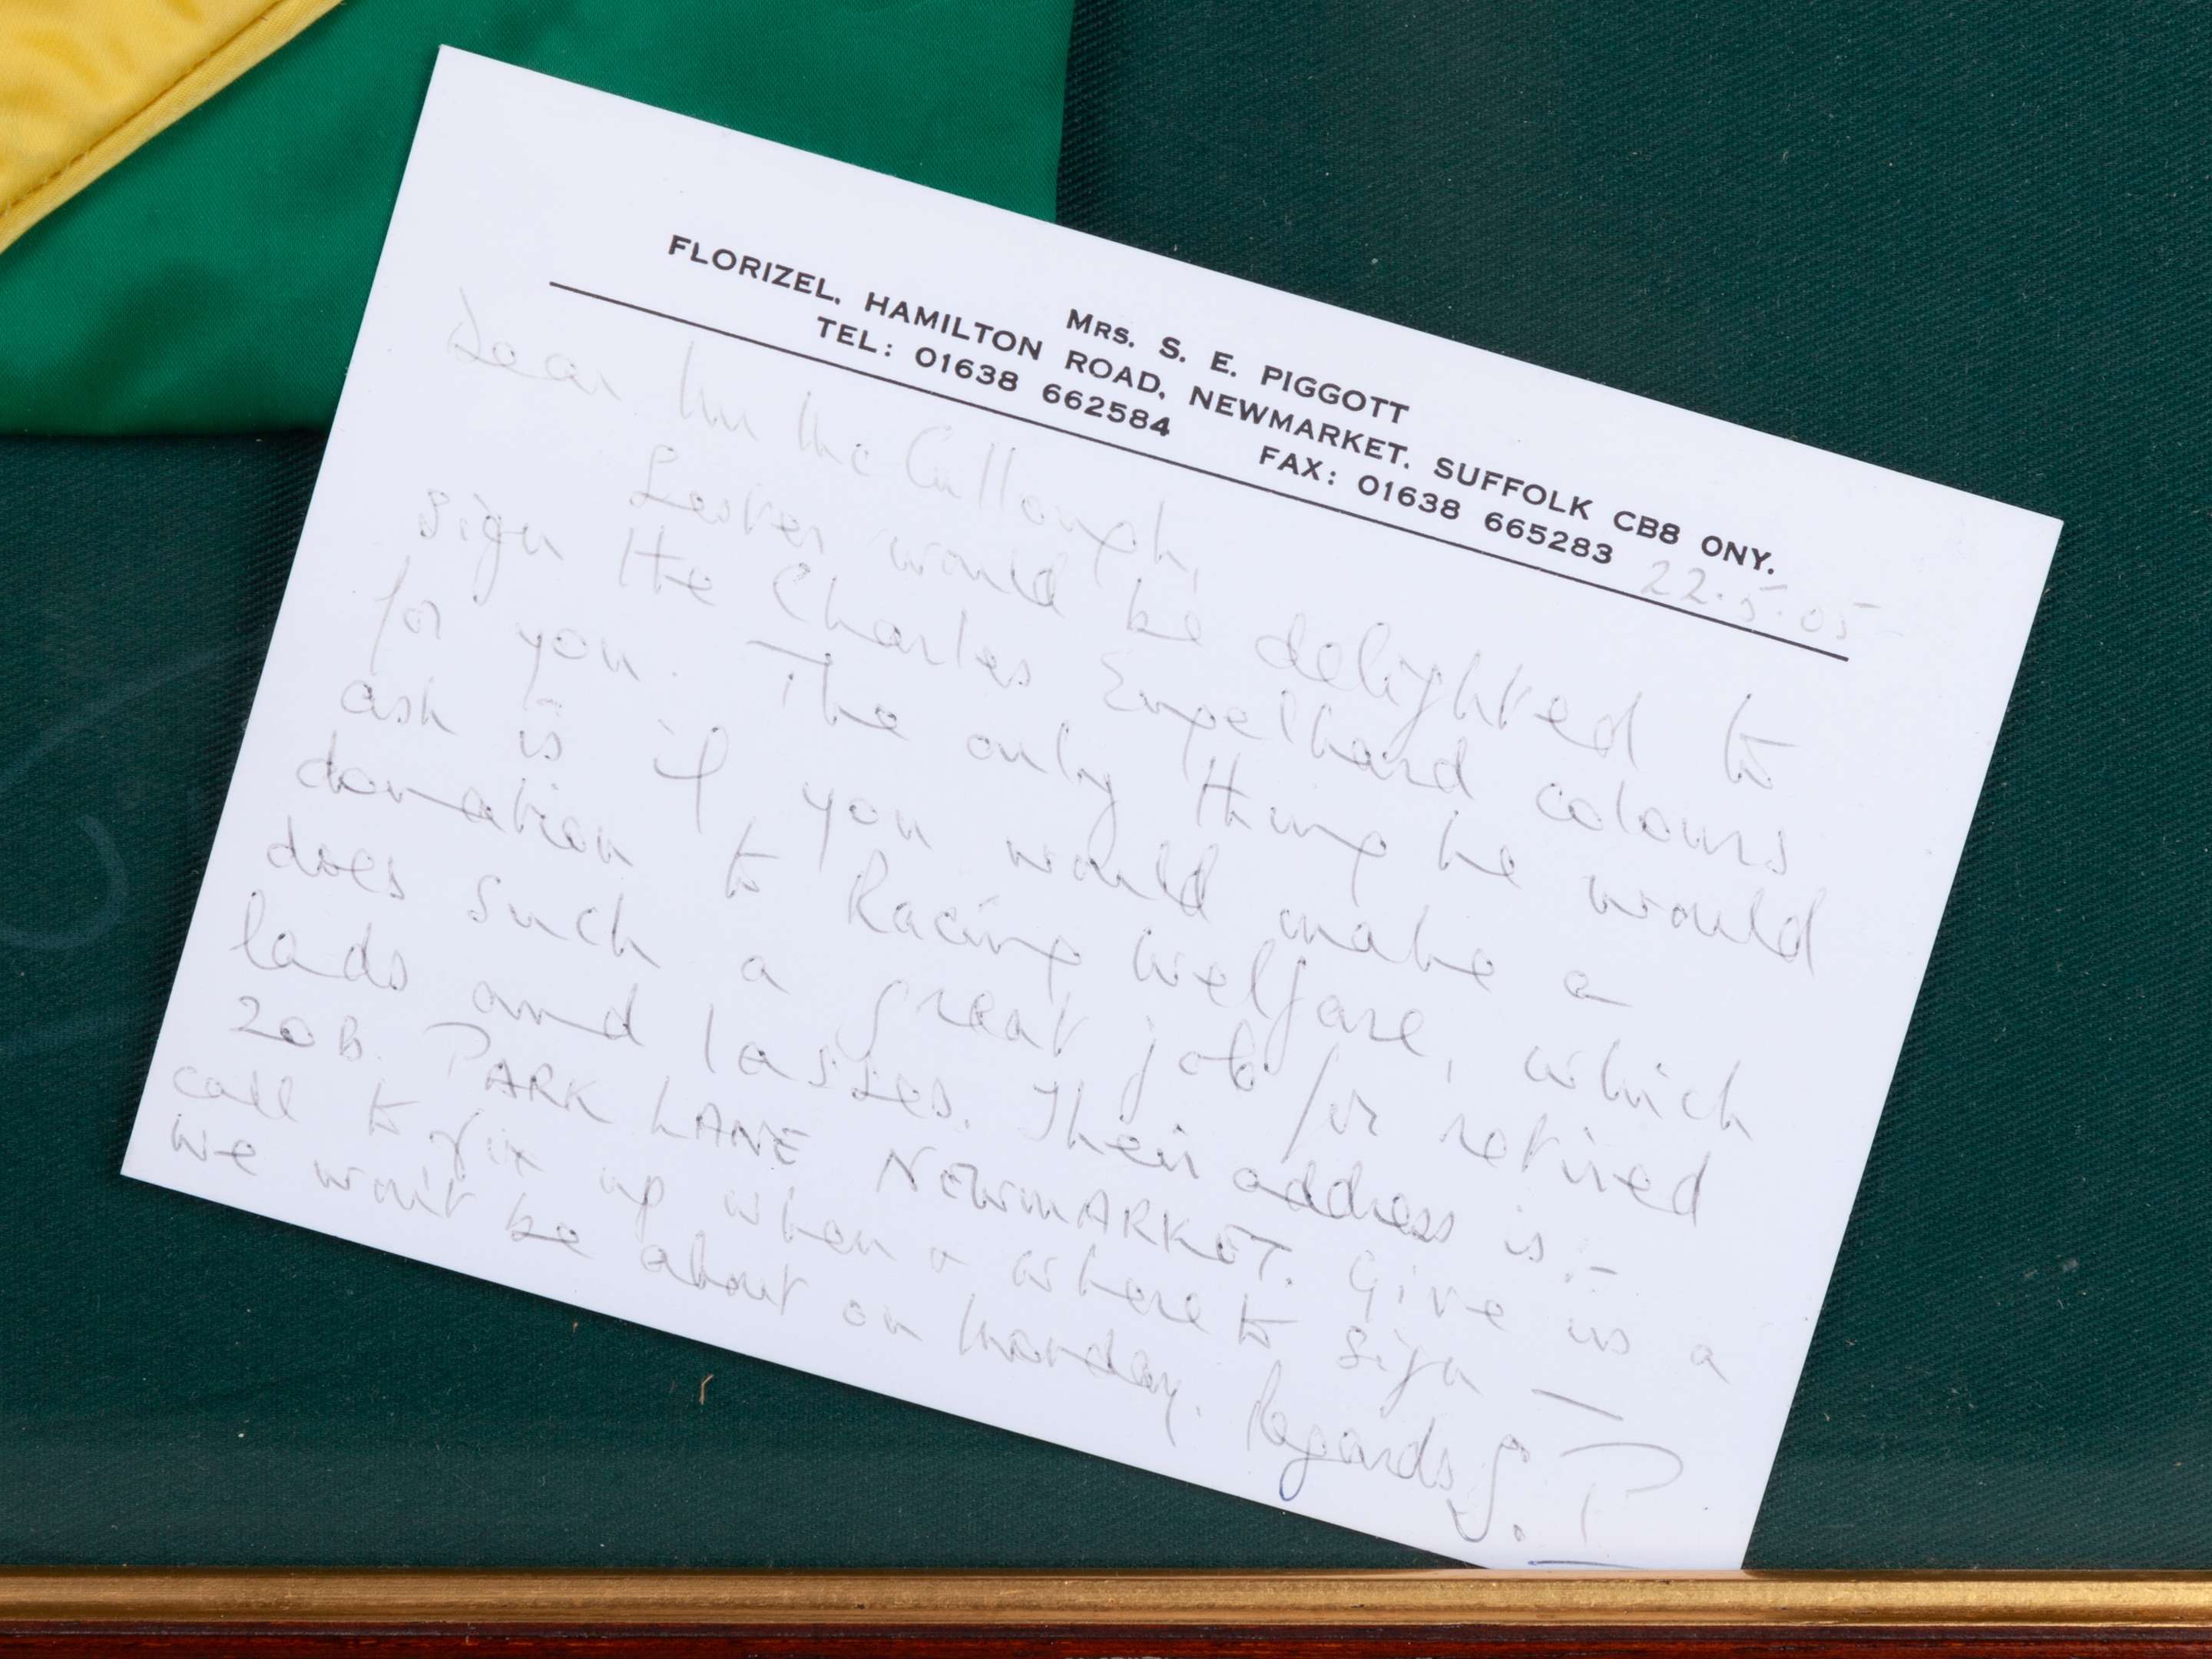 MRS. S. E. PIGGOTT
FLORIZEL, HAMILTON ROAD, NEWMARKET, SUFFOLK CB8 ONY.
TEL: 01638 662584 FAX: 01638 665283
22.5.05
Dear Mr McCullough,
Lester would be delighted to
sign the Charles Engelhard colours
for you. The only thing he would
ask is if you would make a
donation to Racing Welfare, which
does such a great job for retired
lads and lasses. Their address is :-
20B. PARK LANE NEWMARKET. Give us a
call to fix up when & where to sign —
we won't be about on Monday. Regards S. P